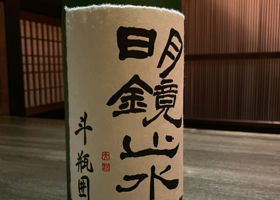 明鏡止水
斗瓶囲